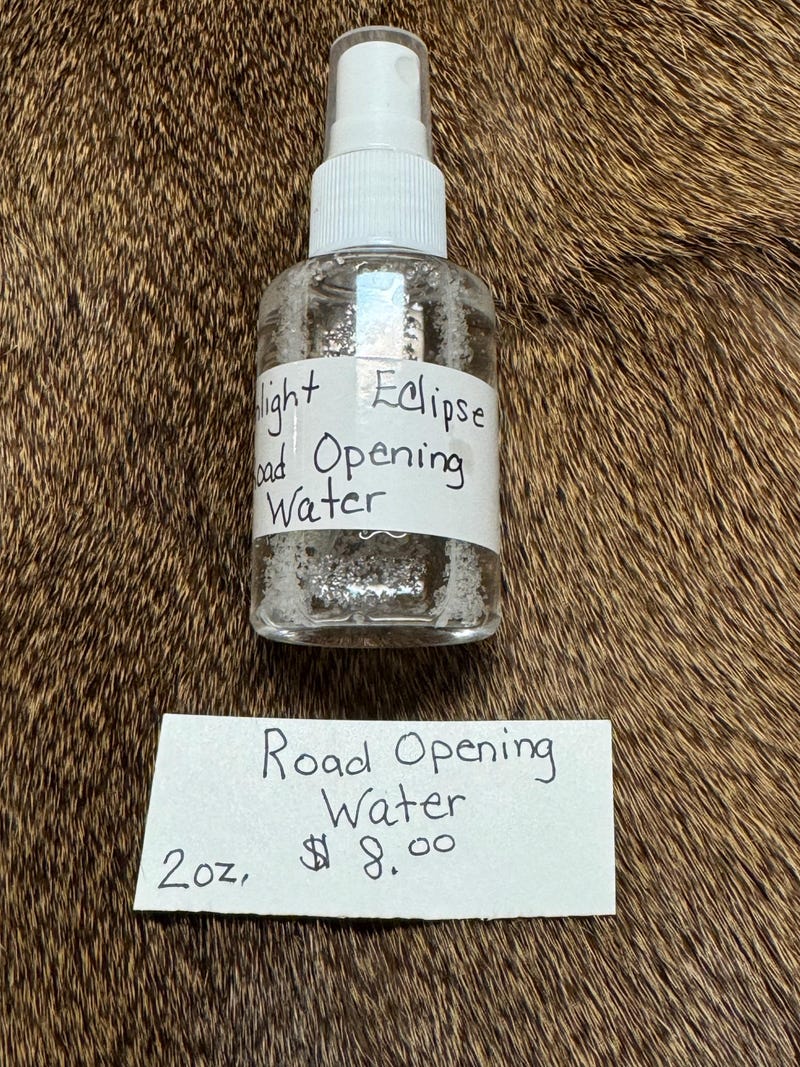 light Eclipse
oad Opening
Water
Road Opening
Water
2oz. $ 8.00